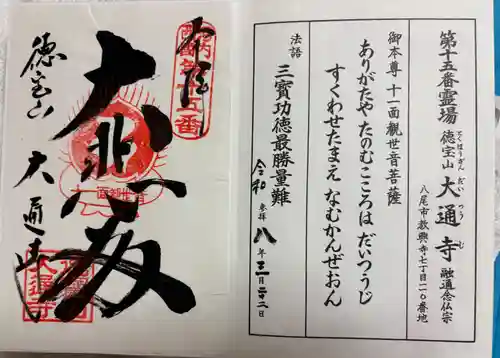 第十五番霊場 徳宝山 大通寺 融通念仏宗
とくほうざん だいつうじ
八尾市教興寺七丁目二一〇番地
御本尊 十一面観世音菩薩
ありがたや たのむこころは だいつうじ
すくわせたまえ なむかんぜおん
法語
三寶功徳最勝量難
令和 参拝 八年三月二十二日
奉拝
第十五番
大悲殿
徳宝山
大通寺